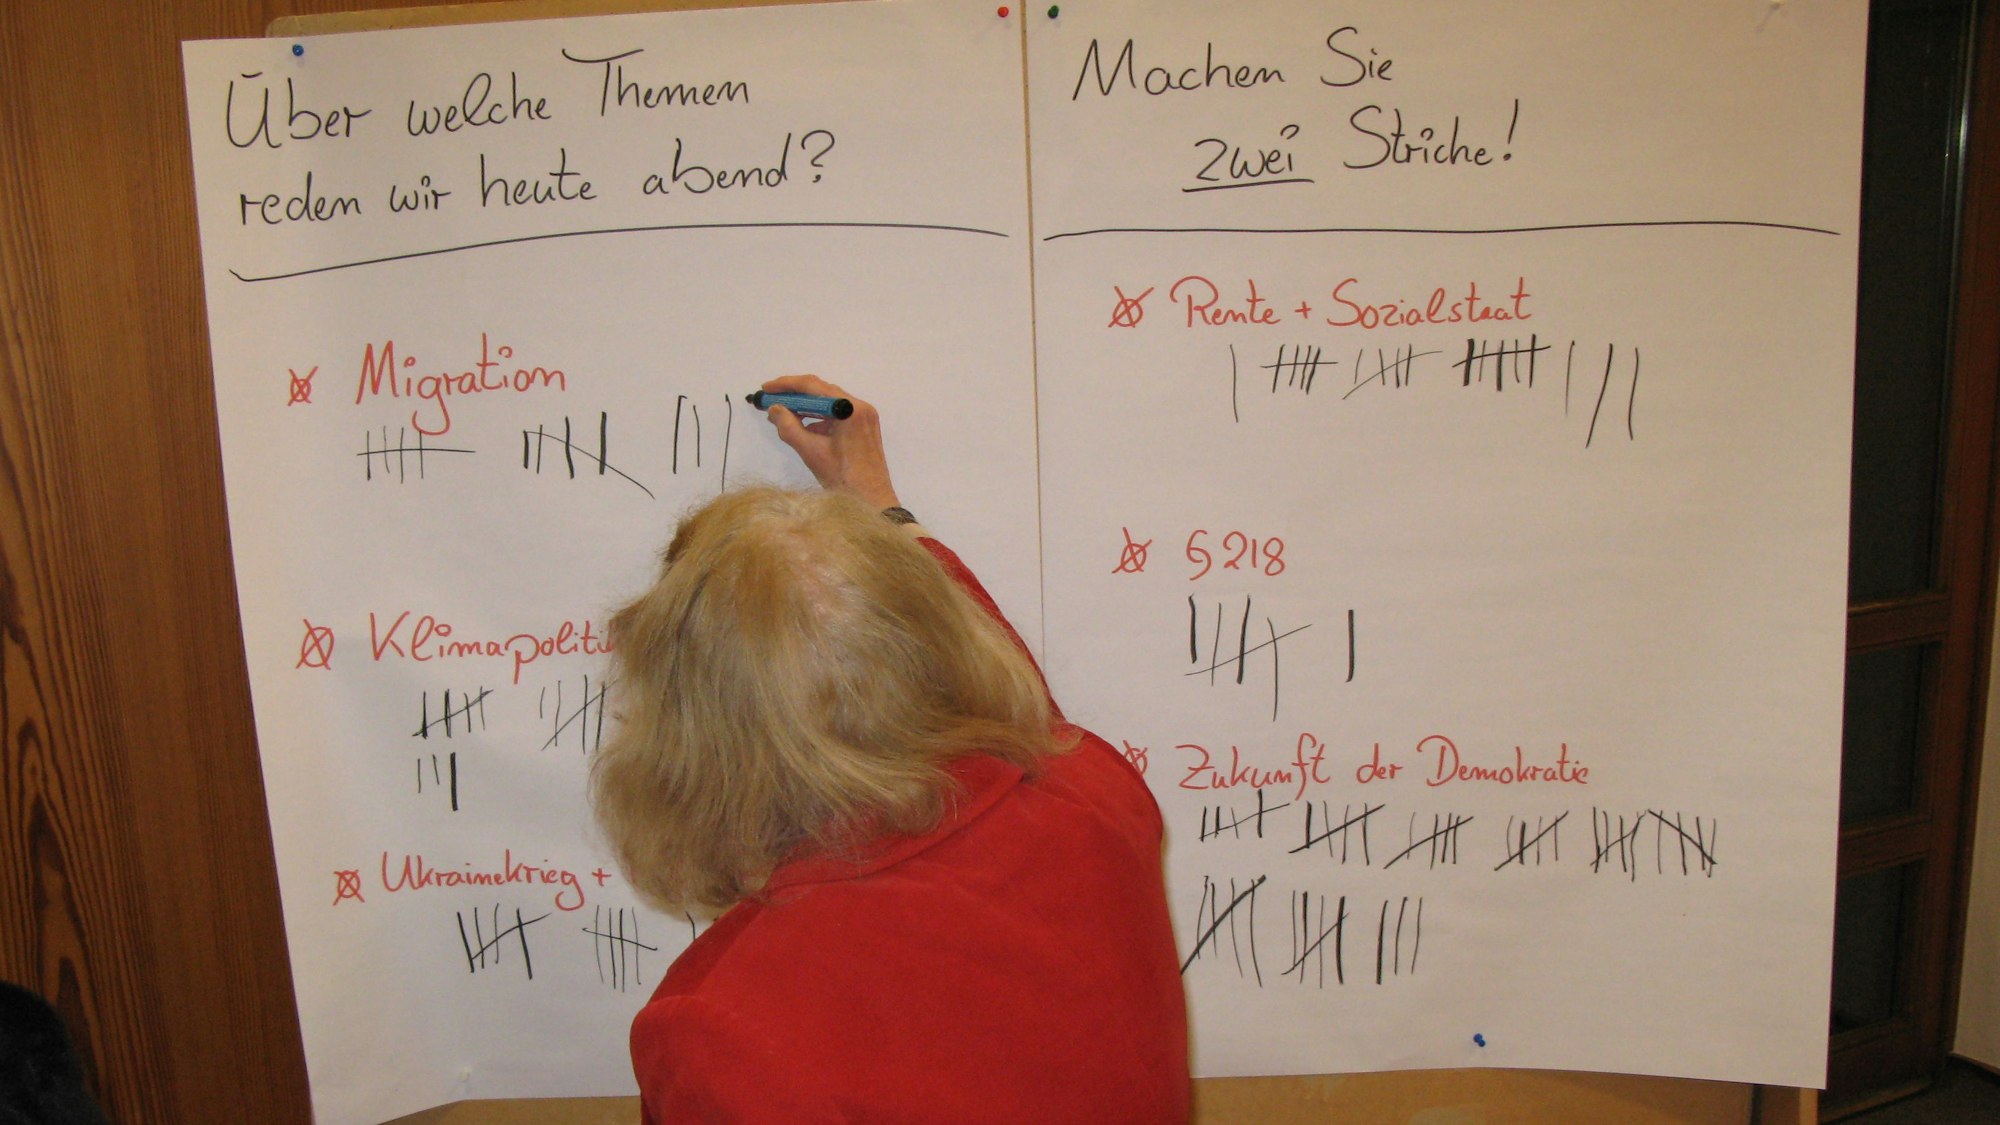 Über welche Themen
reden wir heute abend?
Migration
Klimapoliti
Ukrainekrieg +
Machen Sie
zwei Striche!
Rente + Sozialstaat
§ 218
Zukunft der Demokratie